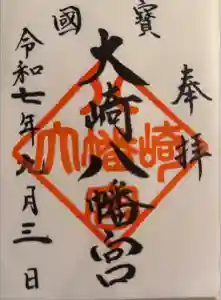 奉拝
國寶
大崎八幡宮
令和七年九月三日